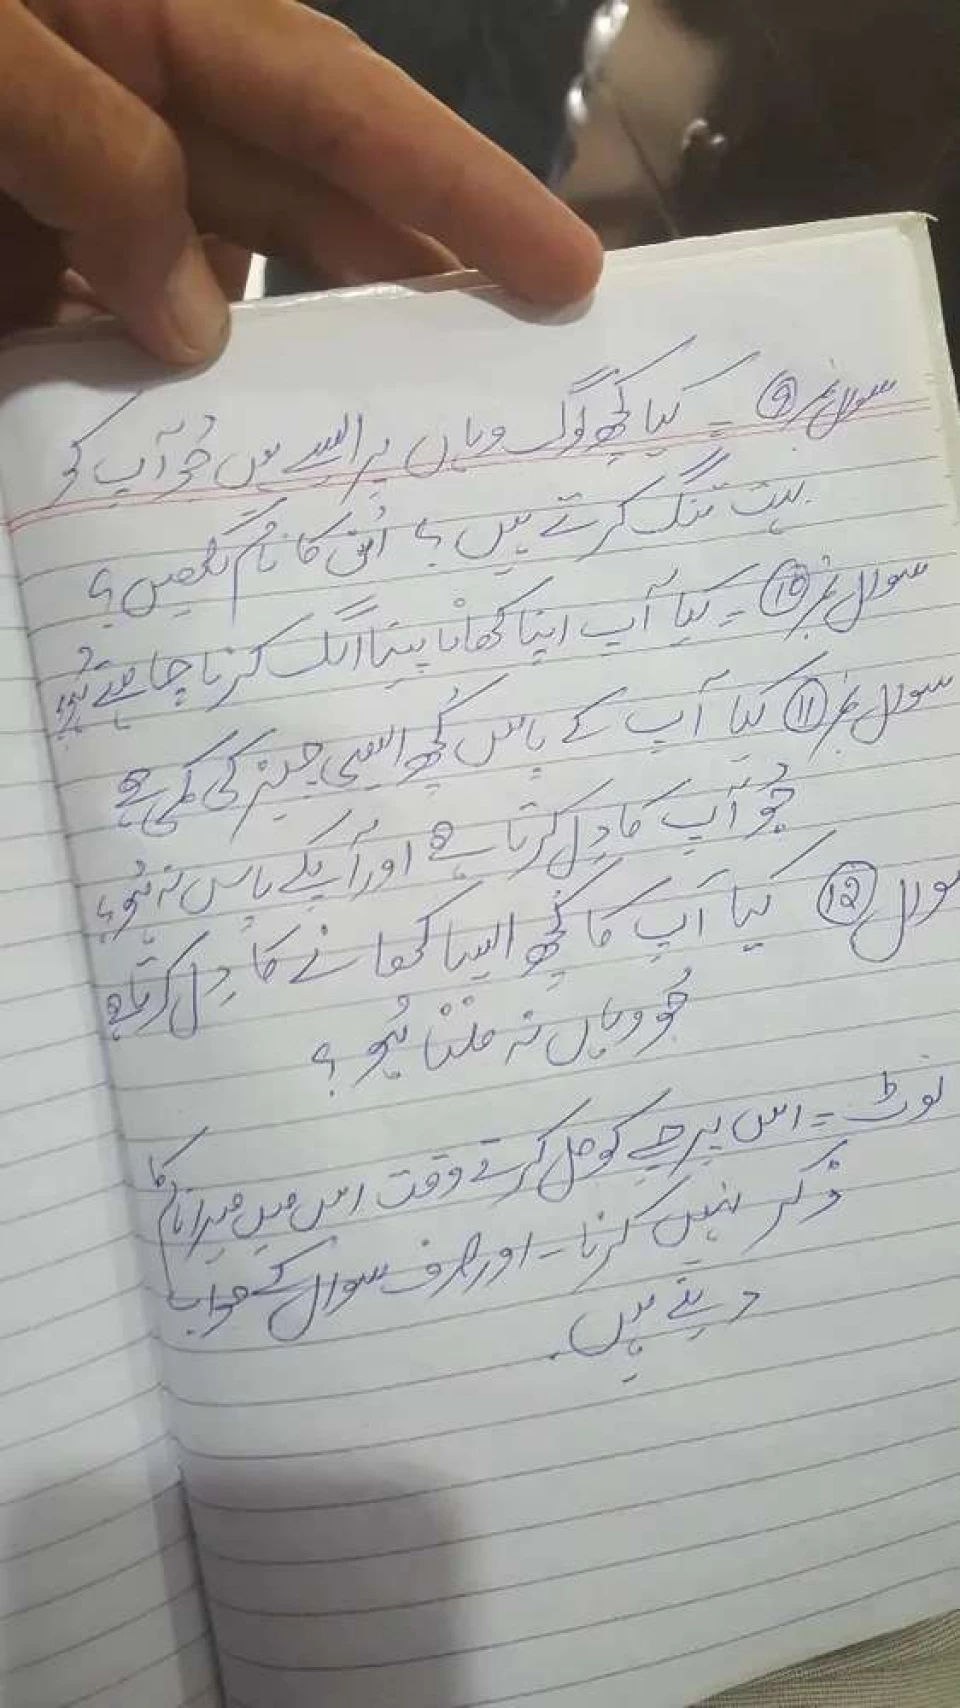 سوال نمبر ⑨ ۔ کیا کچھ لوگ وہاں پر ایسے ہیں جو آپ کو
بہت تنگ کرتے ہیں ؟ اُن کا نام لکھیں ؟
سوال نمبر ⑩ ۔ کیا آپ اپنا کھانا پینا الگ کرنا چاہتے ہو؟
سوال نمبر ⑪ کیا آپ کے پاس کچھ ایسی چیز کی کمی ہے
جو آپ کا دِل کرتا ہے اور آپکے پاس نہ ہو؟
سوال ⑫ کیا آپ کا کچھ ایسا کھانے کا دِل کرتا ہے
جو وہاں نہ ملتا ہو ؟
نوٹ ۔ اس پرچے کو حل کرتے وقت اس میں میرا نام کا
ذکر نہیں کرنا ۔ اور صرف سوال کے جواب
دینے ہیں۔